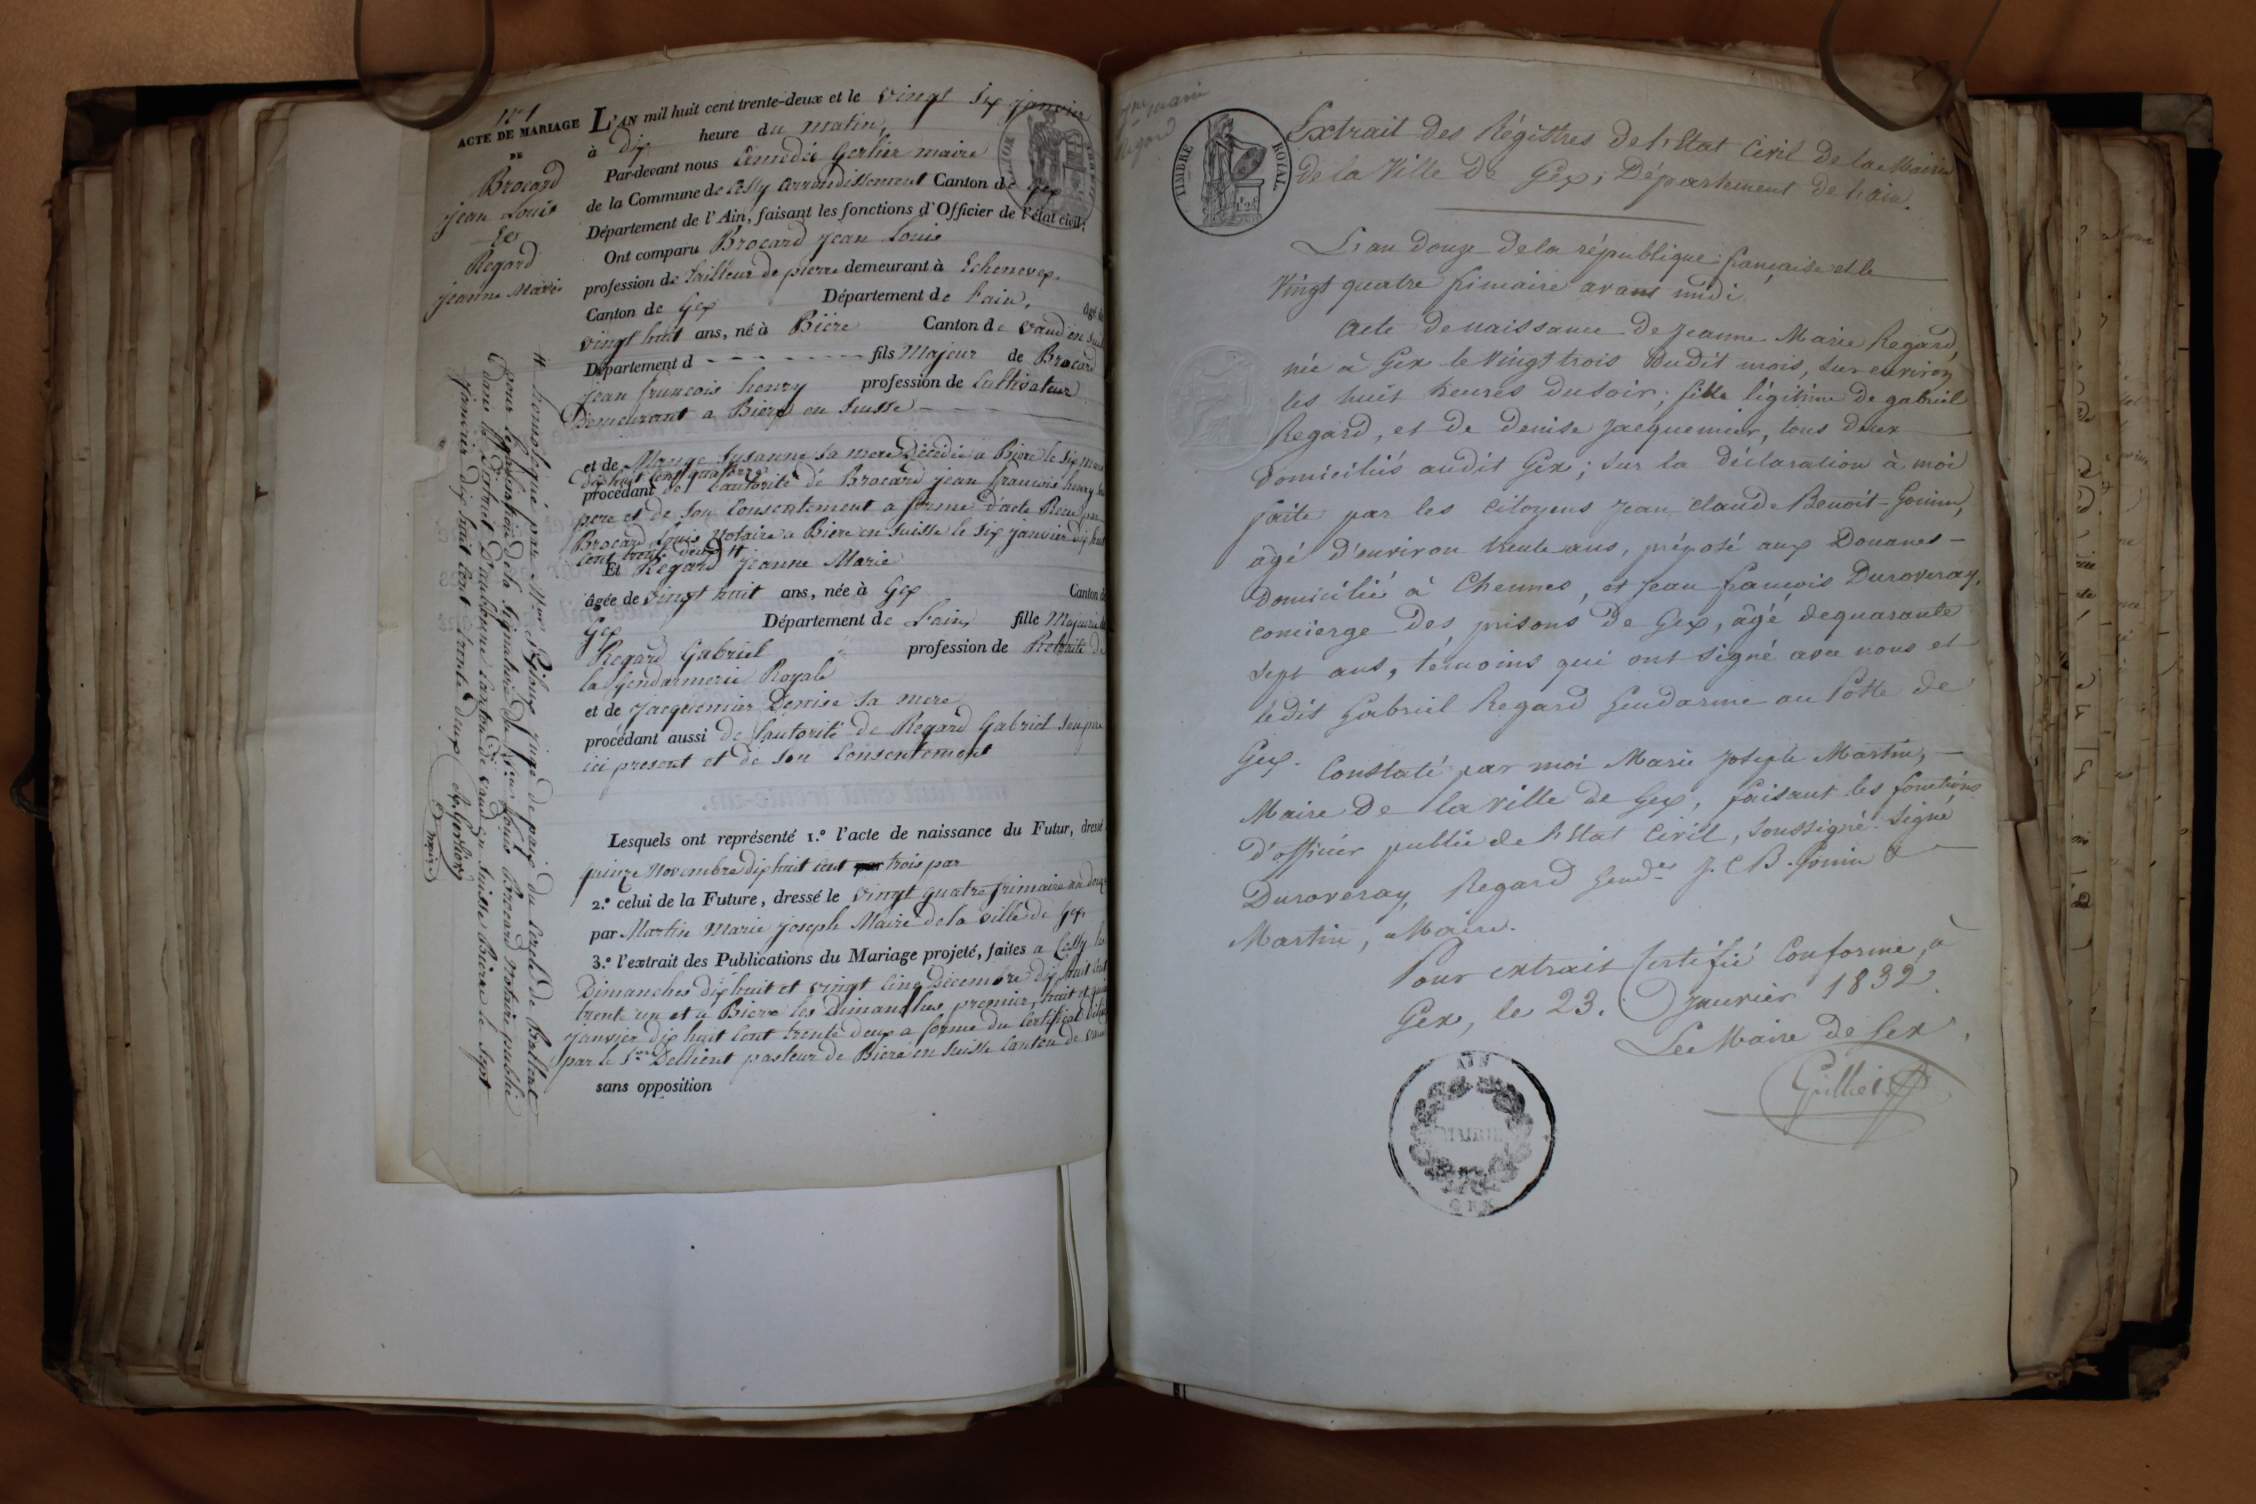 N° 1
ACTE DE MARIAGE
DE
Brocard
jean Louis
Et
Regard
jeanne Marie
L'AN mil huit cent trente-deux et le vingt six janvier
à dix heure du matin,
Par-devant nous amedée Gerlier maire
de la Commune de Cessy arrondissement Canton de Gex
Département de l'Ain, faisant les fonctions d'Officier de l'état civil;
Ont comparu Brocard jean Louis
profession de tailleur de pierre demeurant à Echenevex.
Canton de Gex Département de Lain, âgé de
vingt huit ans, né à Bière Canton de vaud en Suisse
Département d fils Majeur de Brocard
jean francois henry profession de Cultivateur
Demeurant a Bière en Suisse
et de Monge Susanne sa mere Décédée a Biere le six
dix huit cent quatorze
procédant de l'autorité de Brocard jean francois henry son
pere et de son Consentement a forme d'acte Recu par
Brocard Louis Notaire a Biere en Suisse le six janvier dix huit
cent trente deux #
Et Regard jeanne Marie
âgée de vingt huit ans, née à Gex Canton de
Gex Département de Lain, fille Majeure de
Regard Gabriel profession de Retraité de
la Gendarmerie Royale
et de jacquemier Denise sa mere
procédant aussi de l'autorité de Regard Gabriel son pere
ici present et de son Consentement
Lesquels ont représenté 1.° l'acte de naissance du Futur, dressé
quinze Novembre dix huit cent trois par
2.° celui de la Future, dressé le vingt quatre frimaire an douze
par Martin Marie joseph Maire de la ville de Gex
3.° l'extrait des Publications du Mariage projeté, faites a Cessy les
Dimanches dix huit et vingt cinq Decembre dix huit cent
trente un et a Biere les Dimanches premier, huit et quinze
janvier dix huit cent trente deux a forme du Certificat
par le Sr. Dellient pasteur de Biere en Suisse Canton de vaud
sans opposition
# homologué par Mr juge de paix du Cercle de Ballens
pour legalisation de la signature du Sr Louis Brocard Notaire public
dans le District D'aubonne canton de vaud en Suisse Biere le sept
janvier dix huit cent trente deux A. Gerlier
maire
Jne marie
Regard
TIMBRE ROYAL
Extrait des Régistres de l'Etat Civil de la Mairie
de la Ville de Gex, Département de l'ain.
L'an douze de la république française et le
Vingt quatre frimaire avant midi
Acte de naissance de Jeanne Marie Regard,
née à Gex le Vingt trois dudit mois, sur environ
les huit heures du soir; fille légitime de gabriel
Regard, et de denise Jacquemier, tous deux
domiciliés audit Gex; sur la déclaration à moi
faite par les citoyens Jean Claude Benoit-Gonin,
âgé d'environ trente ans, préposé aux Douanes
domicilié à Chennes, et Jean françois Duroveray,
concierge des prisons de Gex, âgé de quarante
sept ans, témoins qui ont signé avec nous et
ledit Gabriel Regard Gendarme au Poste de
Gex. Constaté par moi Marie Joseph Martin,
Maire de la ville de Gex, faisant les fonctions
d'officier public de l'Etat Civil, soussigné. Signé
Duroveray, Regard Gend.e J. C. B. Gonin &
Martin, Maire.
Pour extrait Certifié Conforme, à
Gex, le 23. Janvier 1832.
Le Maire de Gex,
AIN
MAIRIE
GEX